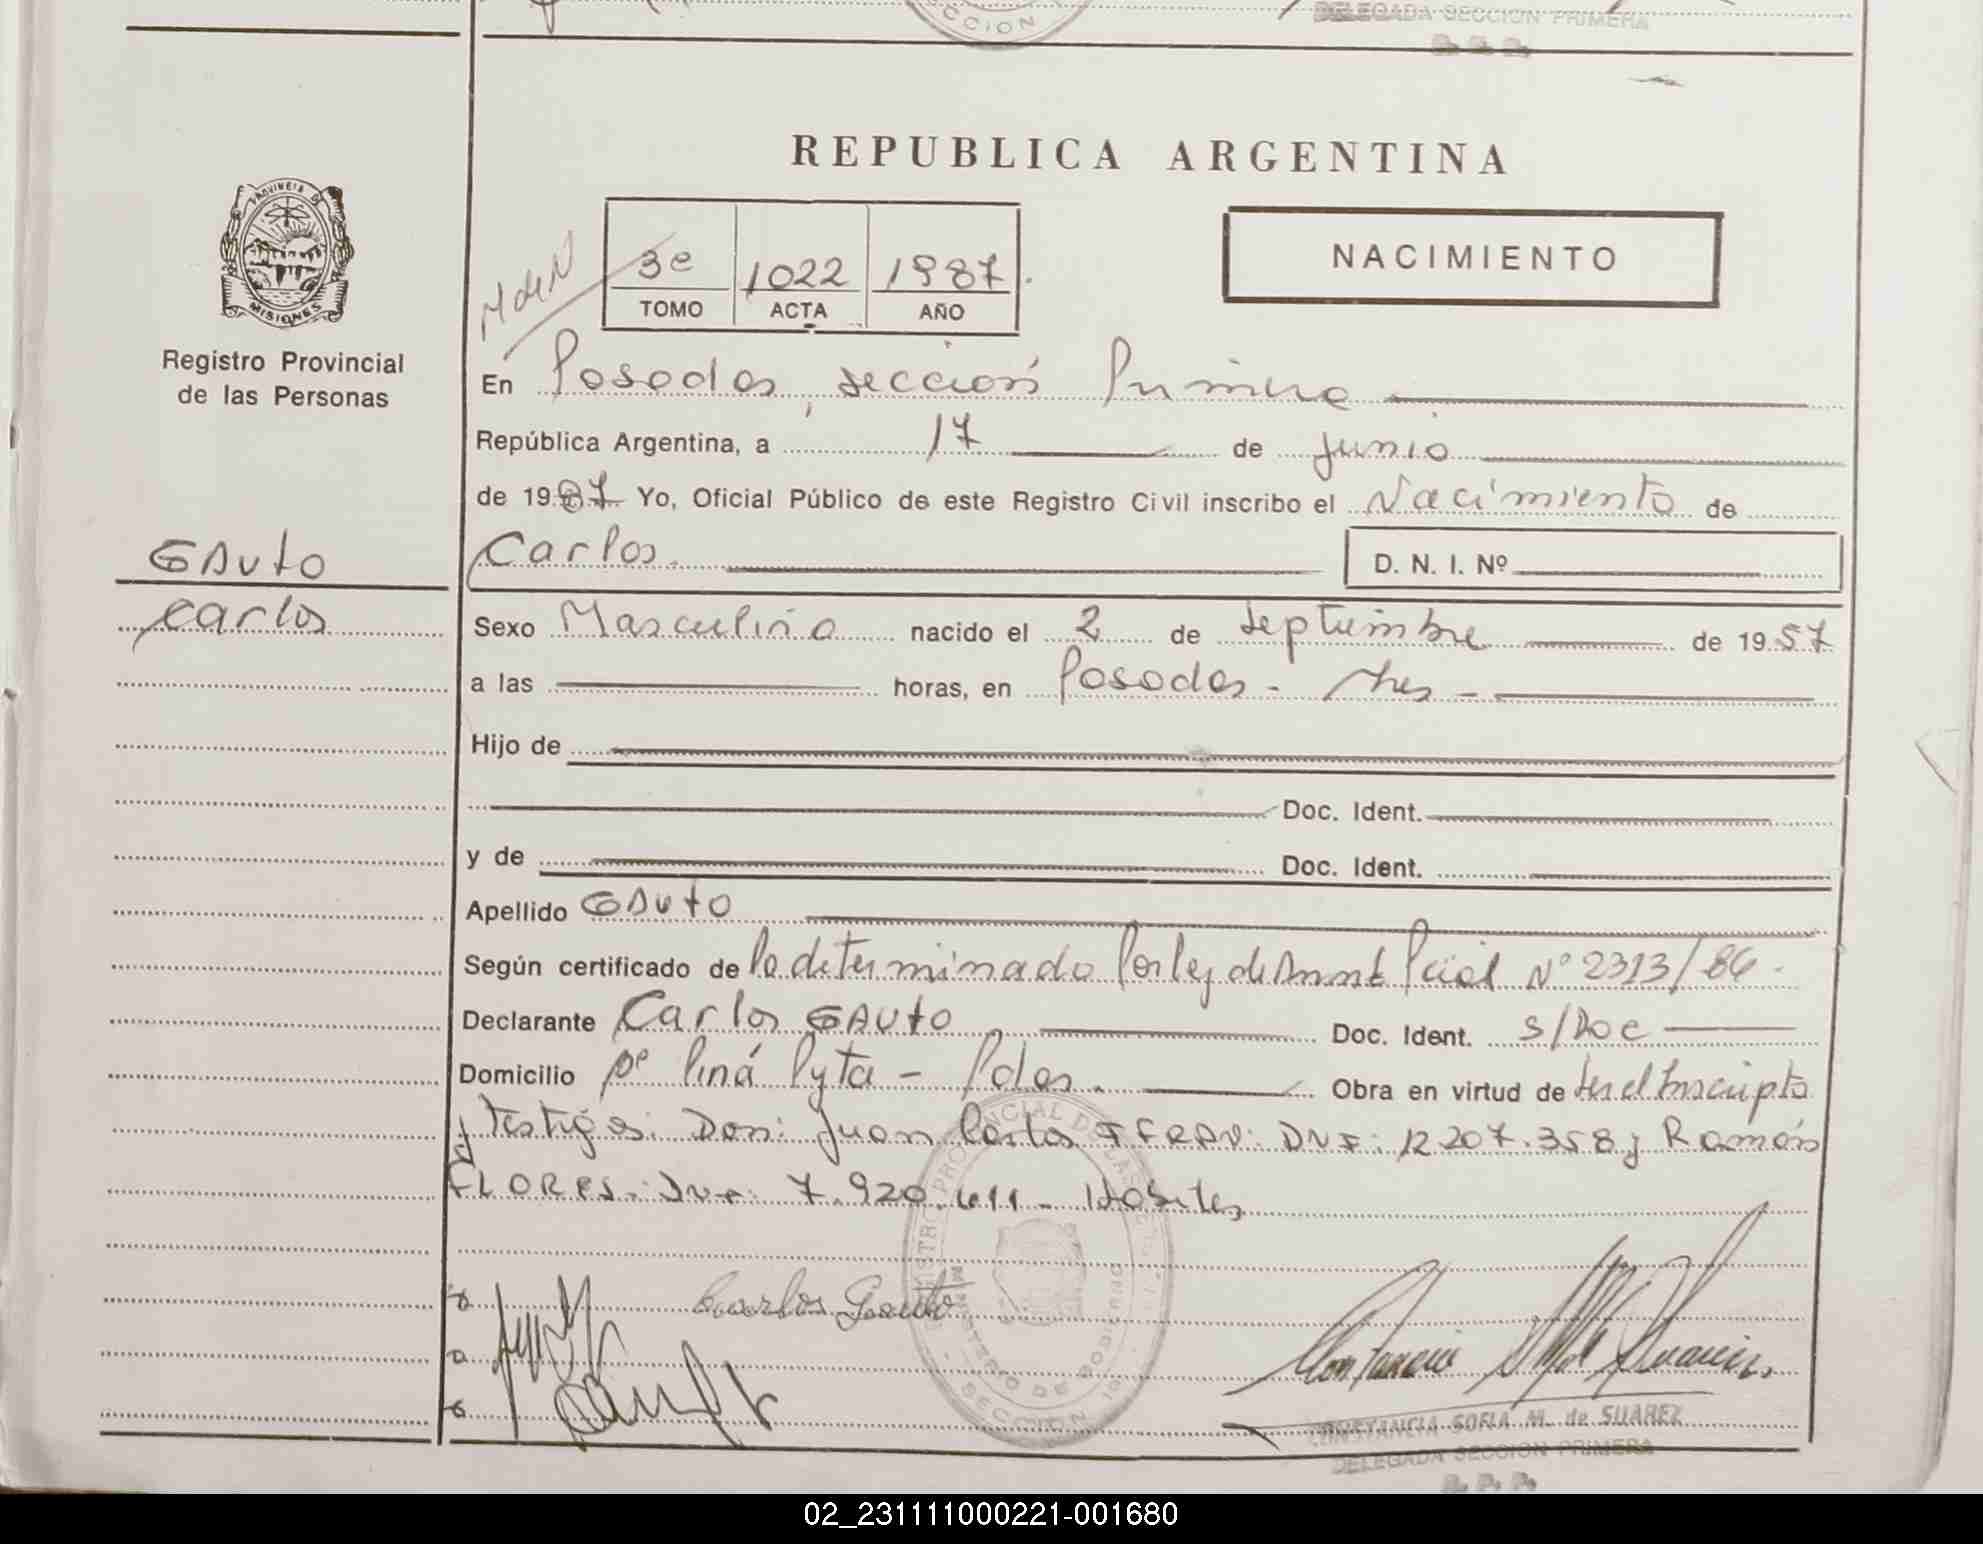 CCION
DELEGADA SECCION PRIMERA
R. P. P.
REPUBLICA ARGENTINA
PROVINCIA DE
MISIONES
Registro Provincial
de las Personas
3e 1022 1987
TOMO ACTA AÑO
NACIMIENTO
En Posadas, sección Primera
República Argentina, a 17 de junio
de 1987 Yo, Oficial Público de este Registro Civil inscribo el Nacimiento de
GAUTO
Carlos. D. N. I. Nº
Carlos
Sexo Masculino nacido el 2 de septiembre de 1957
a las horas, en Posadas - Mnes -
Hijo de
Doc. Ident.
y de Doc. Ident.
Apellido GAUTO
Según certificado de lo determinado Por ley de Amnt Pcial Nº 2313/86.
Declarante Carlos GAUTO Doc. Ident. S/Doc
Domicilio Bº Piná Pyta - Pdas. Obra en virtud de ser el Inscripto
y testigos: Don: Juan Carlos DNI: 12.207.358 y Ramón
FLORES. DNI: 7.920.611 - Hábiles
Carlos Gauto
CONSTANCIA SOFIA M. de SUAREZ
DELEGADA SECCION PRIMERA
R. P. P.
02_231111000221-001680